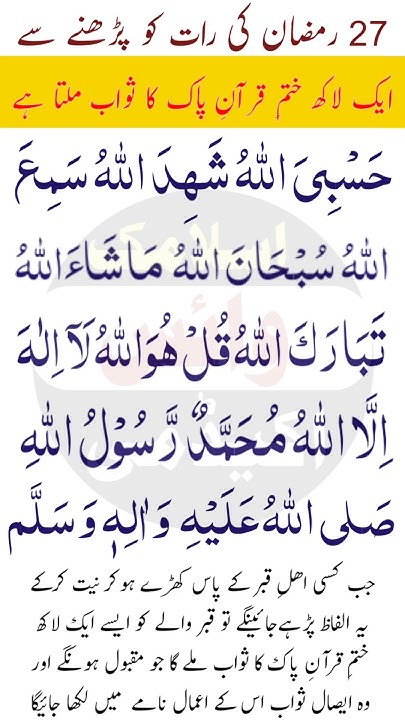 27 رمضان کی رات کو پڑھنے سے
ایک لاکھ ختمِ قرآنِ پاک کا ثواب ملتا ہے
حَسْبِیَ اللہُ شَھِدَ اللہُ سَمِعَ
اللہُ سُبْحَانَ اللہُ مَاشَاءَ اللہُ
تَبَارَكَ اللہُ قُلْ ھُوَاللہُ لَآ اِلٰہَ
اِلَّا اللہُ مُحَمَّدٌ رَّسُوْلُ اللہِ
صَلی اللہُ عَلَیْہِ وَاٰلِہٖ وَسَلَّم
جب کسی اہلِ قبر کے پاس کھڑے ہو کر نیت کرکے
یہ الفاظ پڑہےجائینگے تو قبر والے کو ایسے ایک لاکھ
ختمِ قرآنِ پاک کا ثواب ملے گا جو مقبول ہونگے اور
وہ ایصال ثواب اس کے اعمال نامے میں لکھا جائیگا
اسلامک
وائس
اکیڈمی